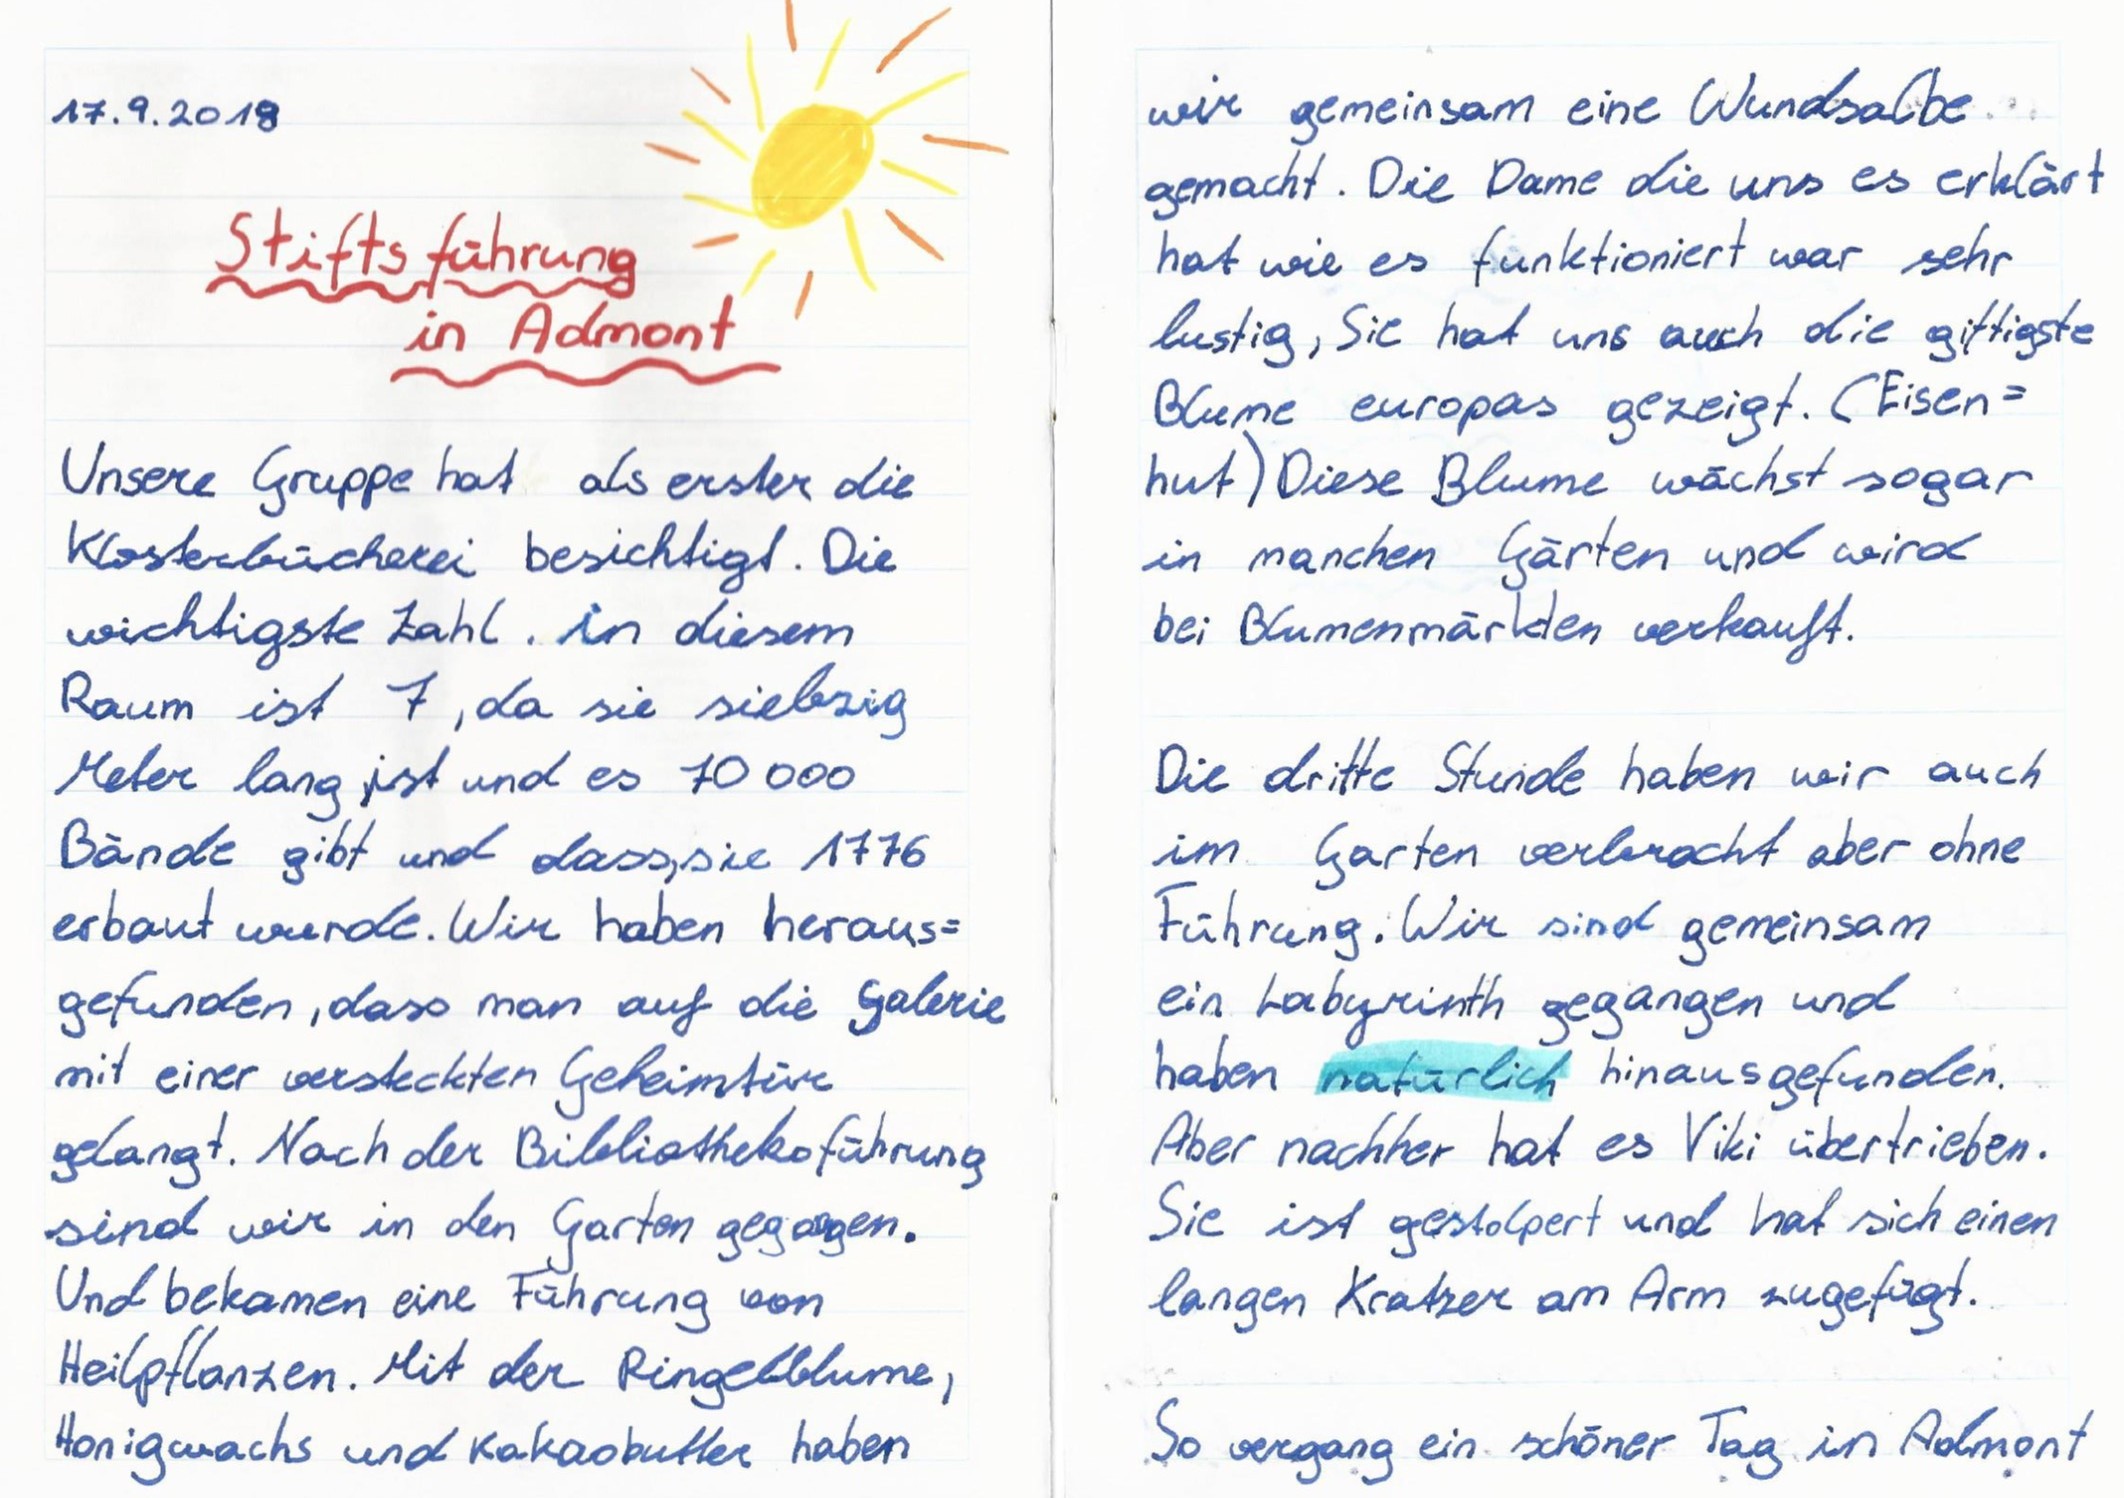 17.9.2018
Stiftsführung
in Admont
Unsere Gruppe hat als erster die
Klosterbücherei besichtigt. Die
wichtigste Zahl. in diesem
Raum ist 7, da sie siebzig
Meter lang ist und es 70 000
Bände gibt und dass, sie 1776
erbaut wurde. Wir haben heraus=
gefunden, dass man auf die Galerie
mit einer versteckten Geheimtüre
gelangt. Nach der Bibliotheksführung
sind wir in den Garten gegangen.
Und bekamen eine Führung von
Heilpflanzen. Mit der Ringelblume,
Honigwachs und Kakaobutter haben
wir gemeinsam eine Wundsalbe
gemacht. Die Dame die uns es erklärt
hat wie es funktioniert war sehr
lustig, Sie hat uns auch die giftigste
Blume europas gezeigt. (Eisen=
hut) Diese Blume wächst sogar
in manchen Gärten und wird
bei Blumenmärkten verkauft.
Die dritte Stunde haben wir auch
im Garten verbracht aber ohne
Führung. Wir sind gemeinsam
ein Labyrinth gegangen und
haben natürlich hinausgefunden.
Aber nachher hat es Viki übertrieben.
Sie ist gestolpert und hat sich einen
langen Kratzer am Arm zugefügt.
So vergang ein schöner Tag in Admont